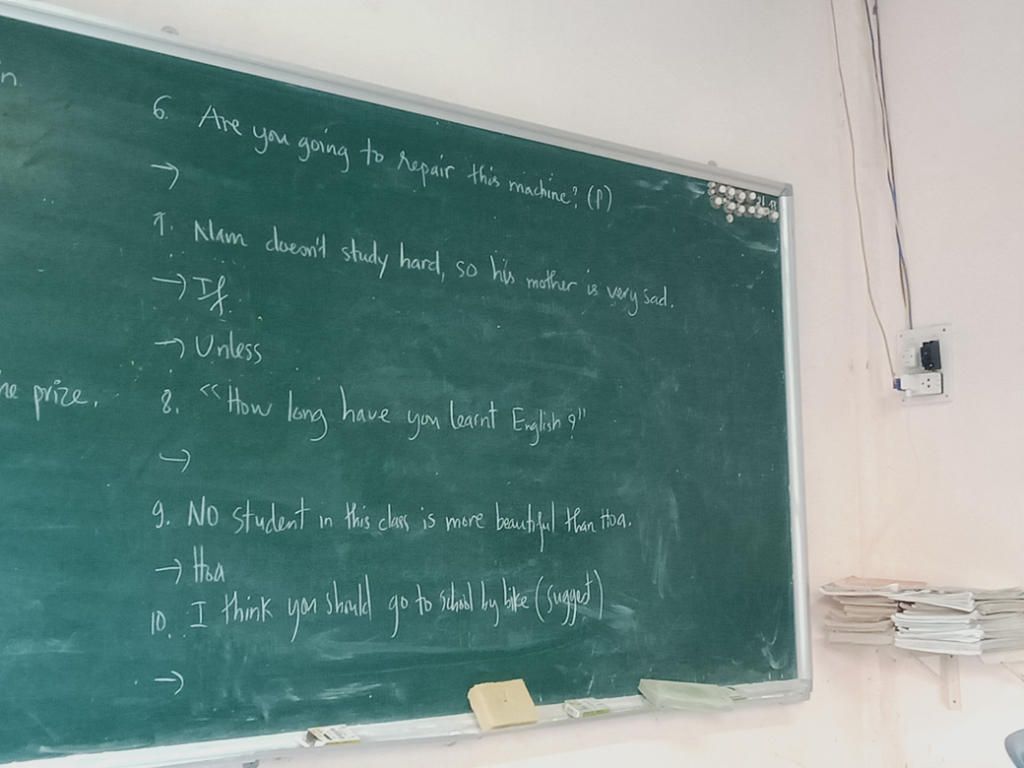 in
6. Are you going to repair this machine? (P)
→
7. Nam doesn't study hard, so his mother is very sad.
→ If
→ Unless
he prize.
8. "How long have you learnt English?"
→
9. No student in this class is more beautiful than Hoa.
→ Hoa
10. I think you should go to school by bike (suggest)
→